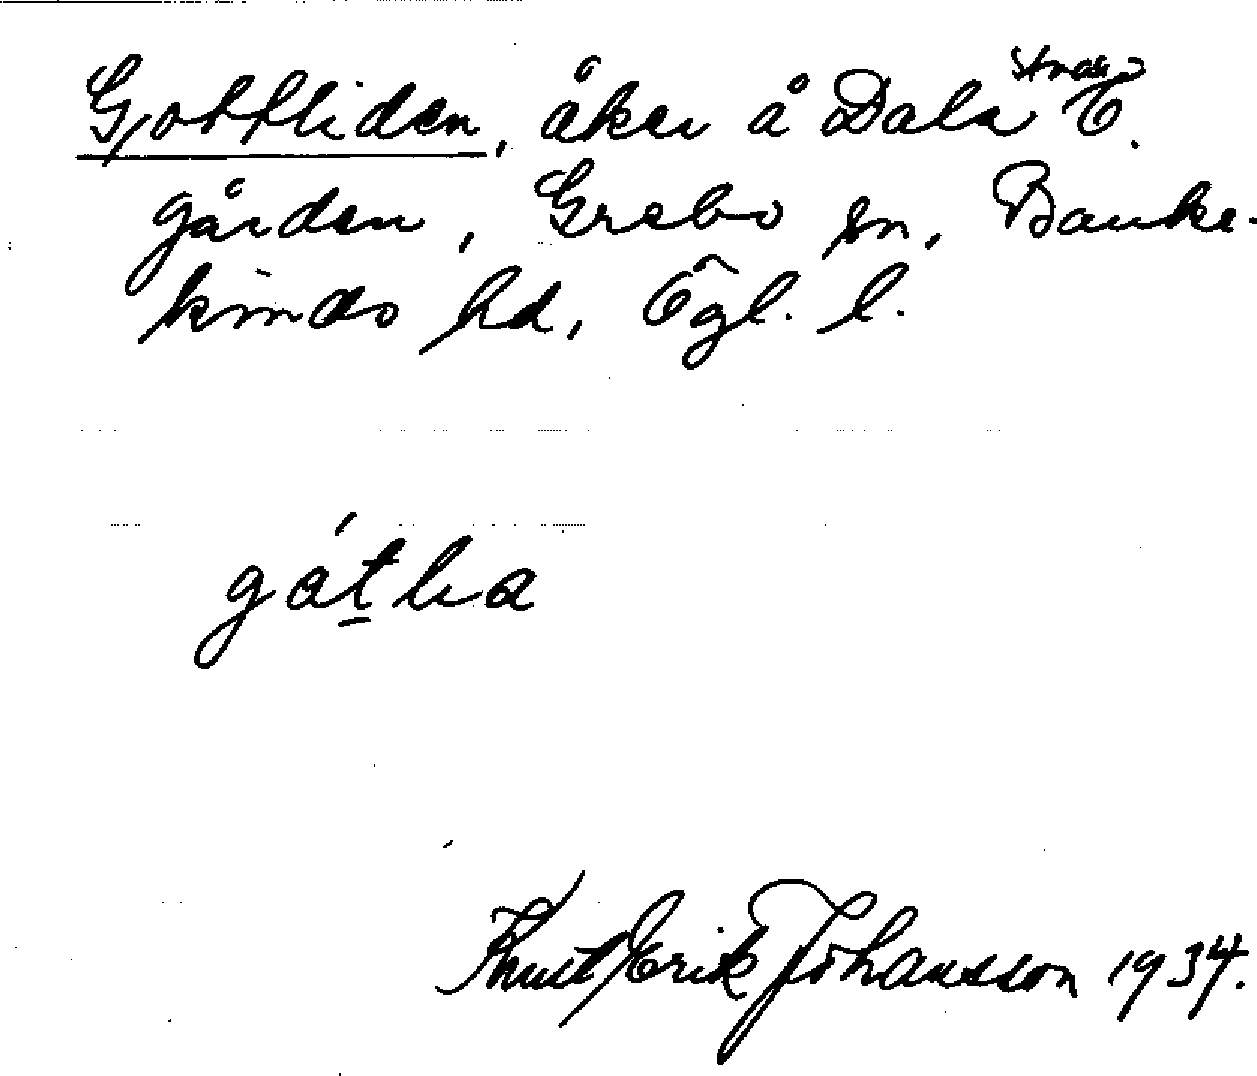 Gottliden, åker å Dala Ö.
gården, Grebo sn, Banke-
kinds hd, Ögl. l.
gátlia
Knut Erik Johansson 1934.